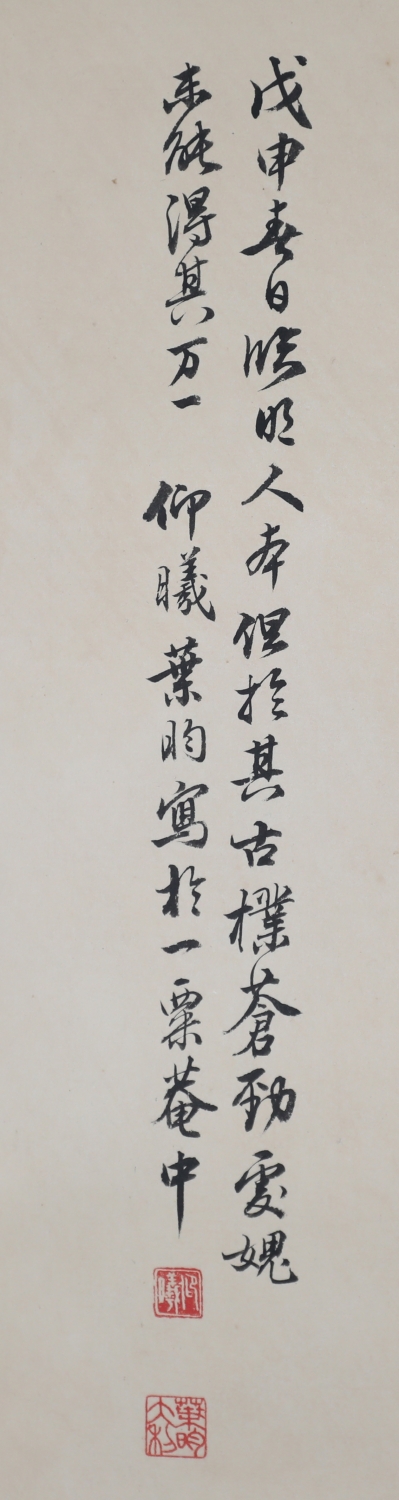 戊申春日臨明人本但於其古樸蒼勁處媿
未能得其万一 仰曦葉昀寫於一粟菴中
仰曦
葉昀大利